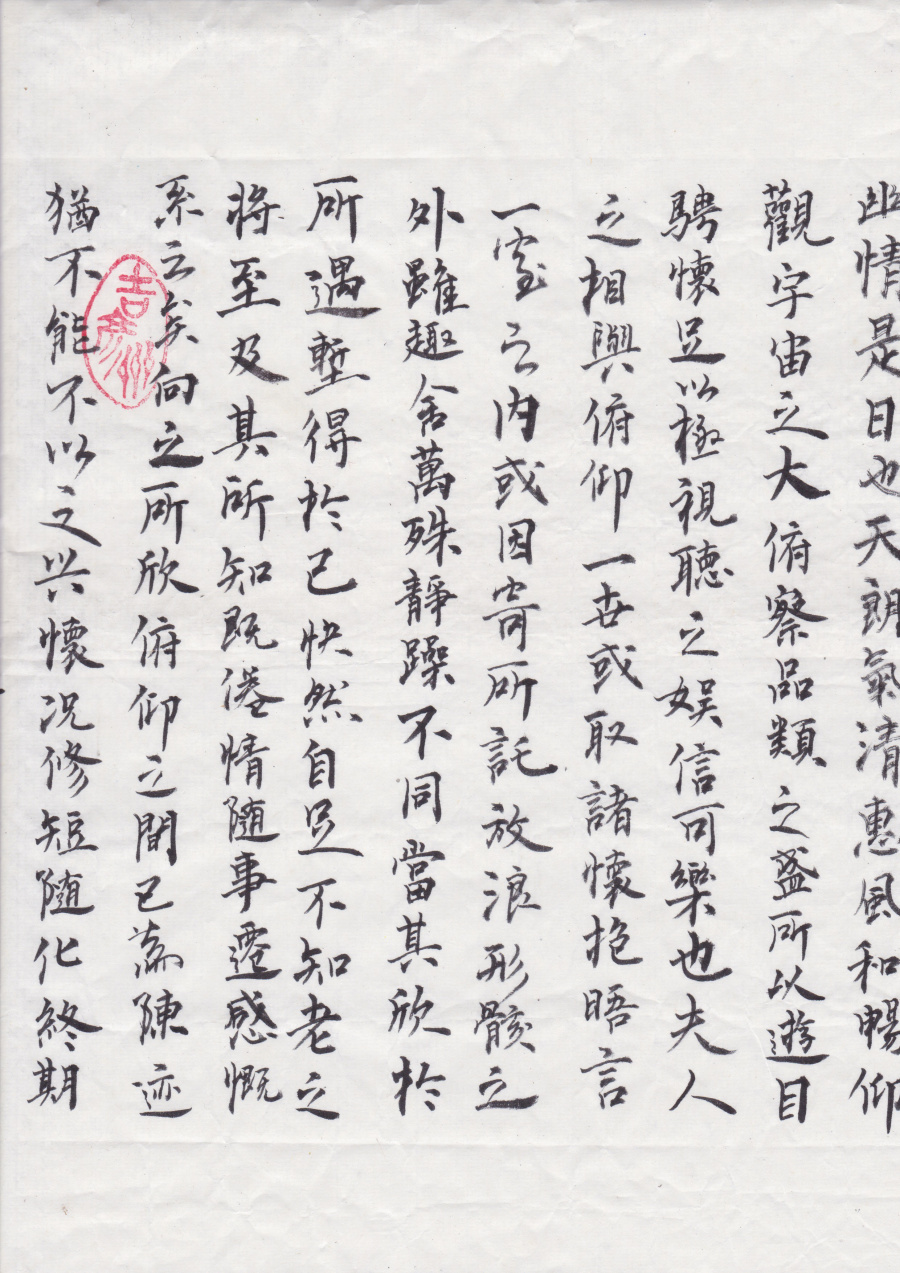 幽情是日也天朗氣清惠風和暢仰
觀宇宙之大俯察品類之盛所以遊目
騁懷足以極視聽之娱信可樂也夫人
之相與俯仰一世或取諸懷抱晤言
一室之内或因寄所託放浪形骸之
外雖趣舍萬殊靜躁不同當其欣於
所遇蹔得於己快然自足不知老之
将至及其所知既倦情随事遷感慨
系之矣向之所欣俯仰之間已為陳迹
猶不能不以之兴懷况修短随化終期